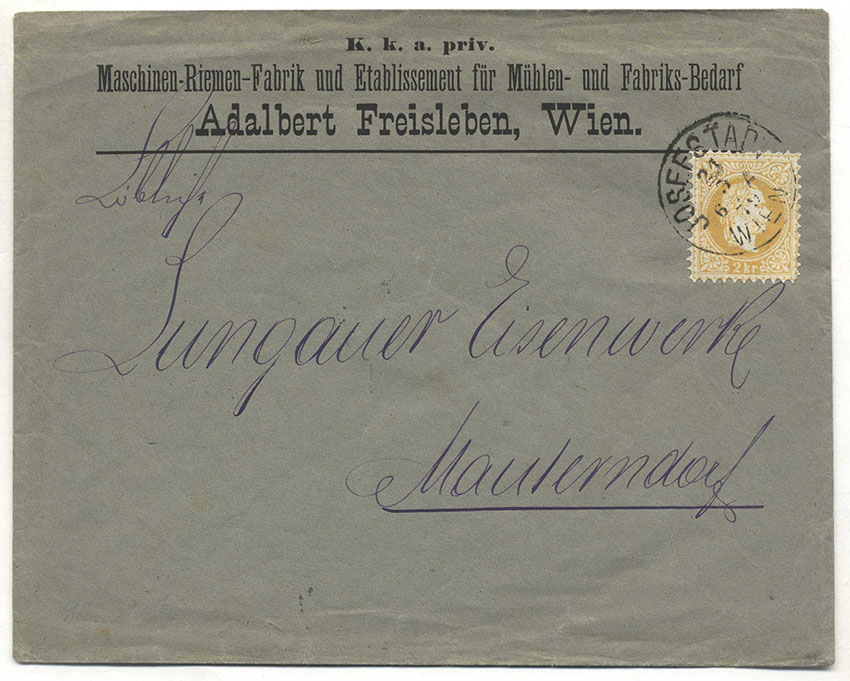 K. k. a. priv.
Maschinen-Riemen-Fabrik und Etablissement für Mühlen- und Fabriks-Bedarf
Adalbert Freisleben, Wien.
JOSEFSTADT
WIEN
2 kr
Löbliche
Lungauer Eisenwerke
Mauterndorf